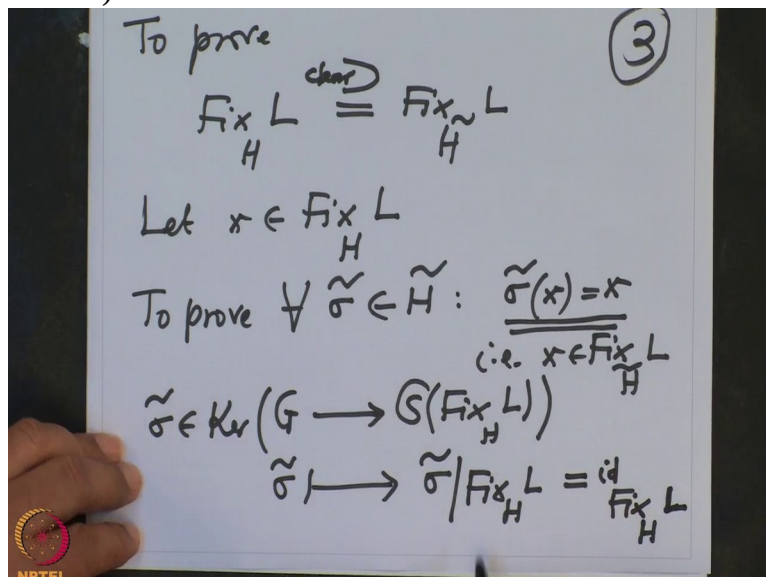 To prove
③
clear ⊃
Fix_H L = Fix_H̃ L
Let x ∈ Fix_H L
To prove ∀ σ̃ ∈ H̃ : σ̃(x) = x
i.e. x ∈ Fix_H̃ L
σ̃ ∈ Ker (G ⟶ 𝔖(Fix_H L))
σ̃ ⟼ σ̃ | Fix_H L = id_Fix_H L
NPTEL